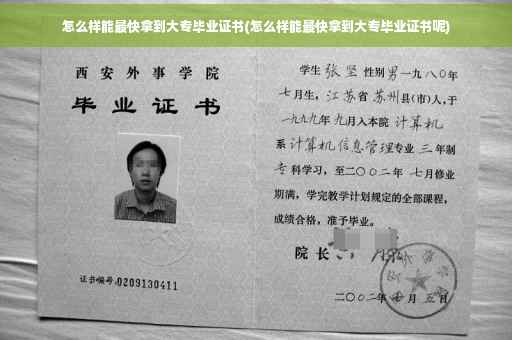 怎么样能最快拿到大专毕业证书(怎么样能最快拿到大专毕业证书呢)
西安外事学院
毕业证书
证书编号:0209130411
学生 张坚 性别男一九八〇年
七月生,江苏省苏州县(市)人,于
一九九九年九月入本院 计算机
系计算机信息管理专业 三年制
专科学习,至二〇〇二年 七月修业
期满,学完教学计划规定的全部课程,
成绩合格,准予毕业。
院长
二〇〇二年 七月 五日